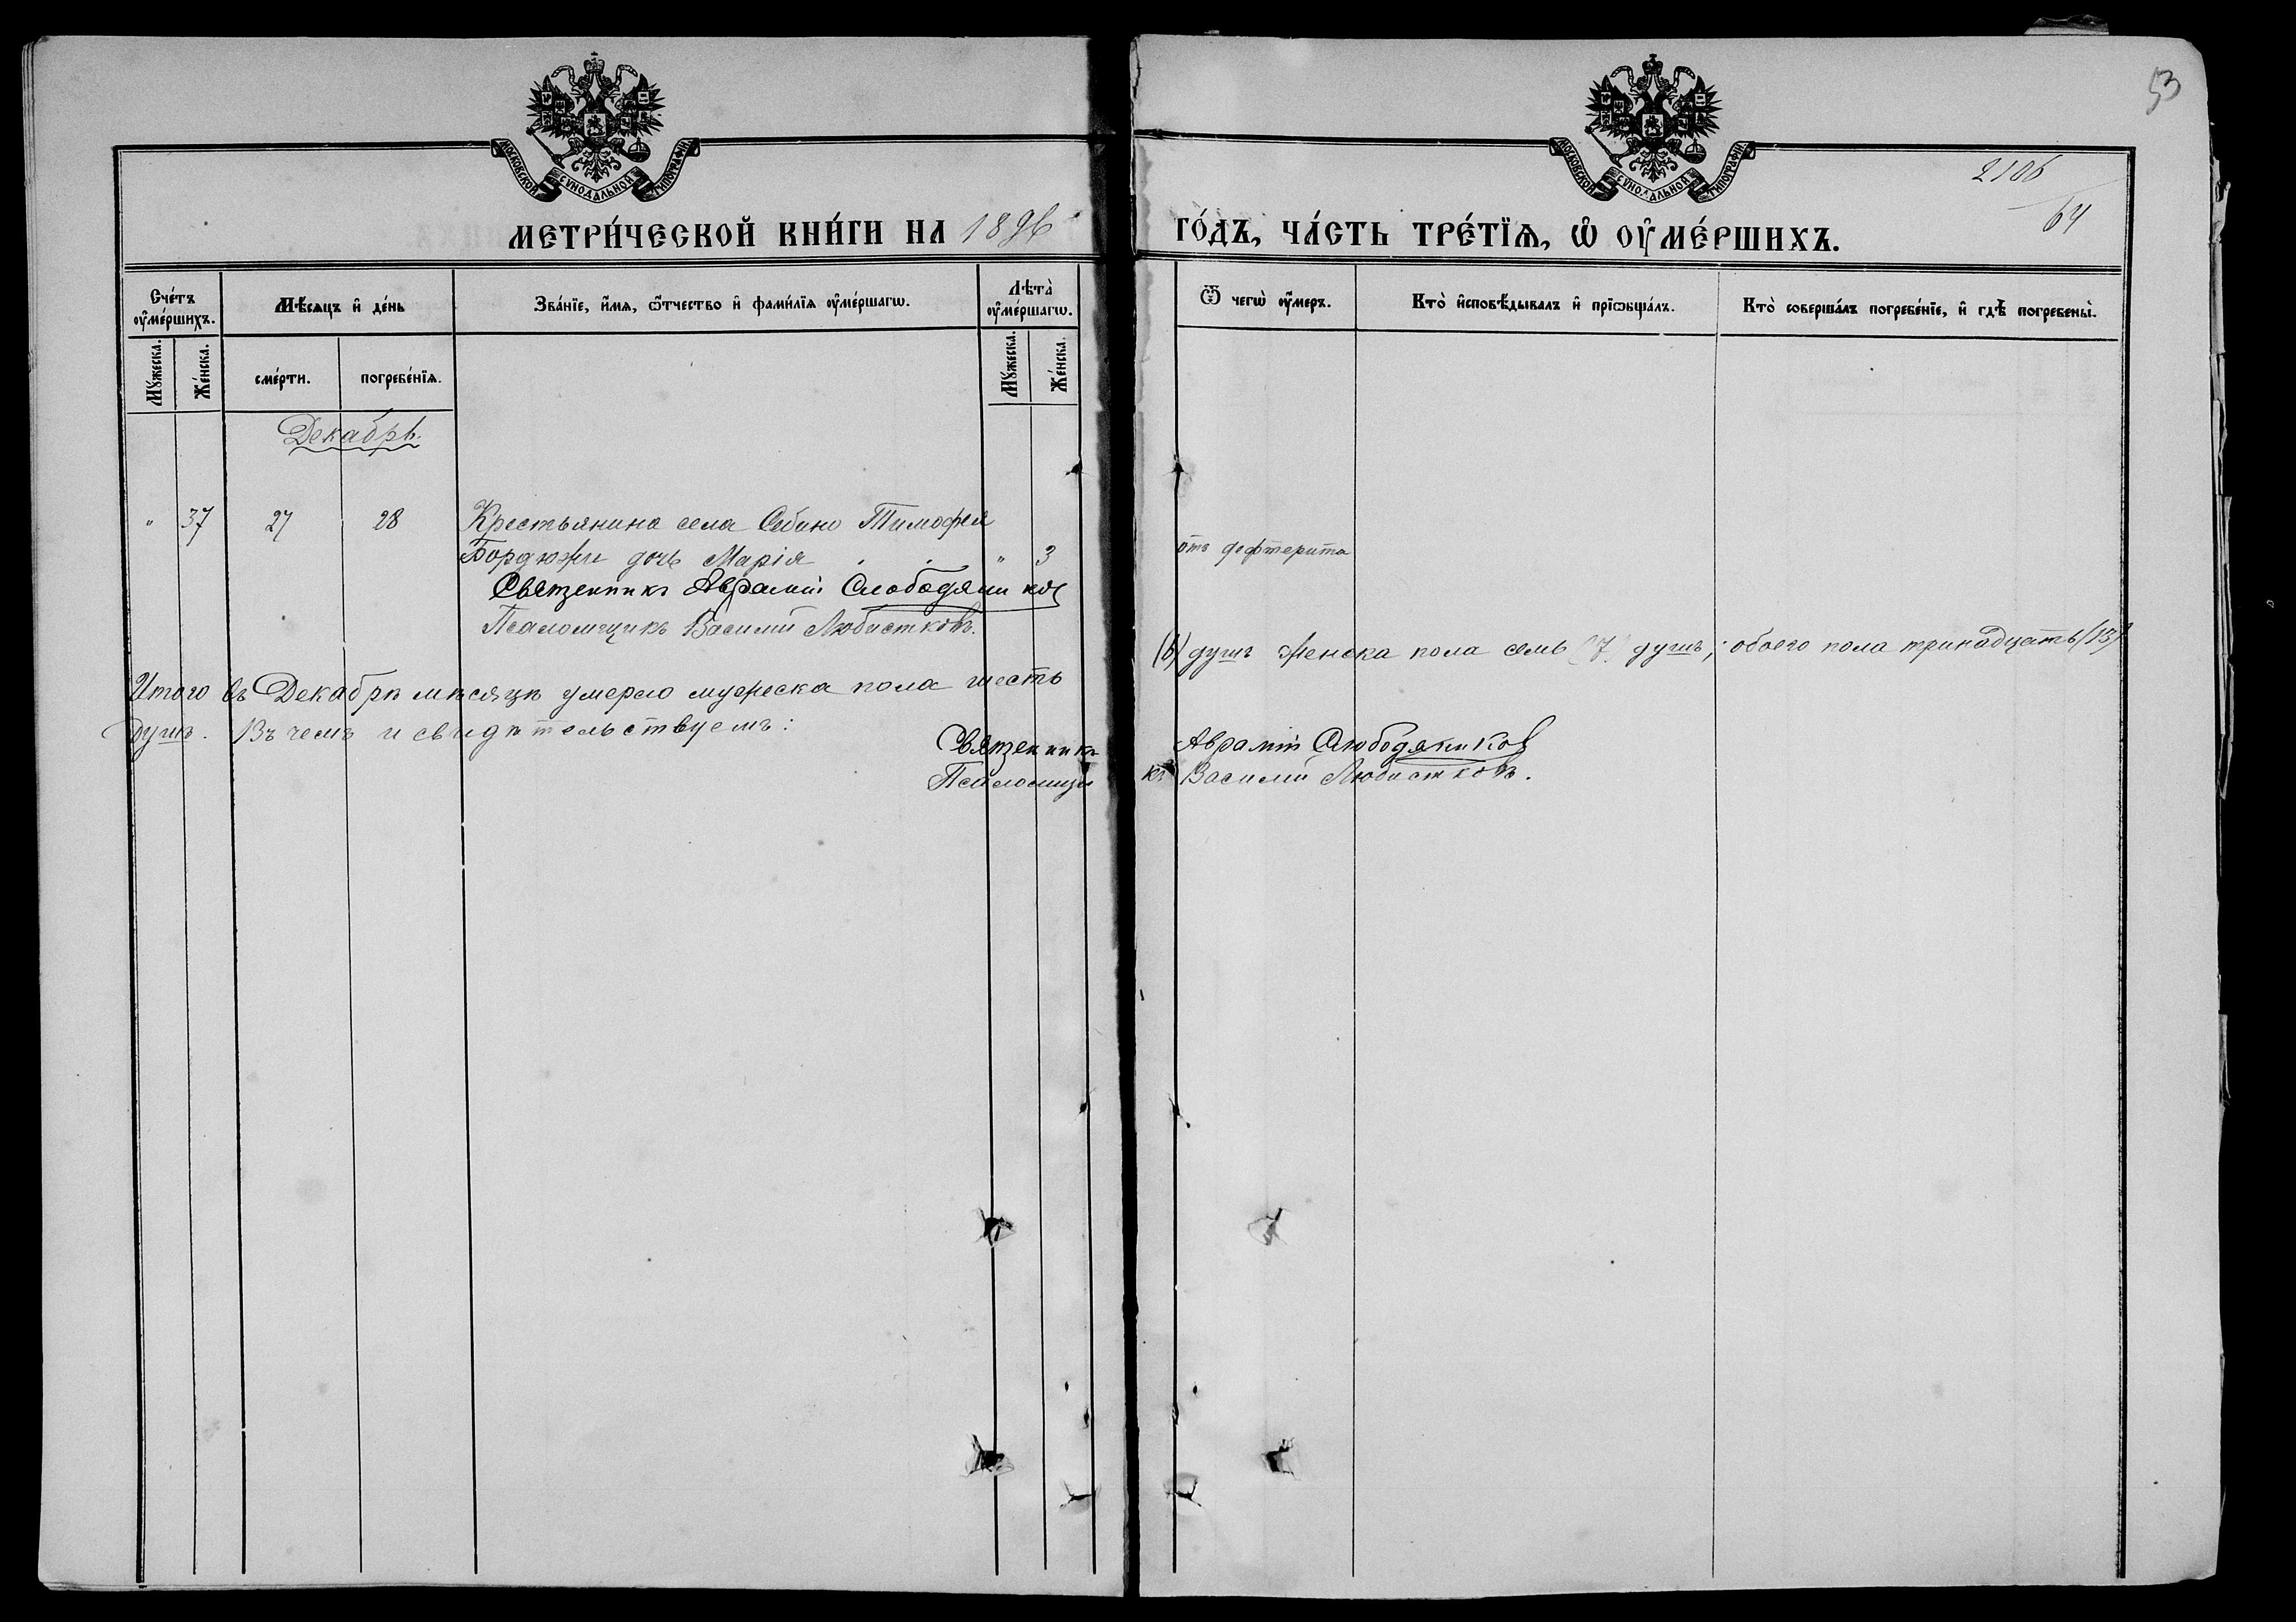 53
МОСКОВСКОЙ СѴНОДАЛЬНОЙ ТИПОГРАФІИ
МОСКОВСКОЙ СѴНОДАЛЬНОЙ ТИПОГРАФІИ
2106
64
МЕТРИ́ЧЕСКОЙ КНИ́ГИ НА 1896 ГО́ДЪ, ЧА́СТЬ ТРЕ́ТЇѦ, Ѡ҆ ОУ҆МЕ́РШИХЪ.
Сче́тъ оу҆ме́ршихъ.
Мѣ́сяцъ и҆ де́нь
Зва́нїе, и҆́мя, ѻ҆́тчество и҆ фами́лїя оу҆ме́ршагѡ.
Лѣта̀ оу҆ме́ршагѡ.
Ѿ чегѡ̀ оу҆́меръ.
Кто̀ и҆сповѣ́дывалъ и҆ прїѡбща́лъ.
Кто̀ соверша́лъ погребе́нїе, и҆ гдѣ̀ погребены̀.
Мꙋ́жеска.
Же́нска.
сме́рти.
погребе́нїя.
Мꙋ́жеска.
Же́нска.
Декабрь.
" 37 27 28 Крестьянина села Себино Тимофея
Бордюжи дочь Марія . . " 3 отъ дифтерита
Священникъ Аврамій Слободяников
Псаломщикъ Василій Любистковъ.
Итого въ Декабрѣ мѣсяцѣ умерло мужеска пола шесть (6) душъ женска пола семь (7) душъ, обоего пола тринадцать (13)
душъ. Въ чемъ и свидѣтельствуемъ:
Священникъ Аврамій Слободяников
Псаломщикъ Василій Любистковъ.